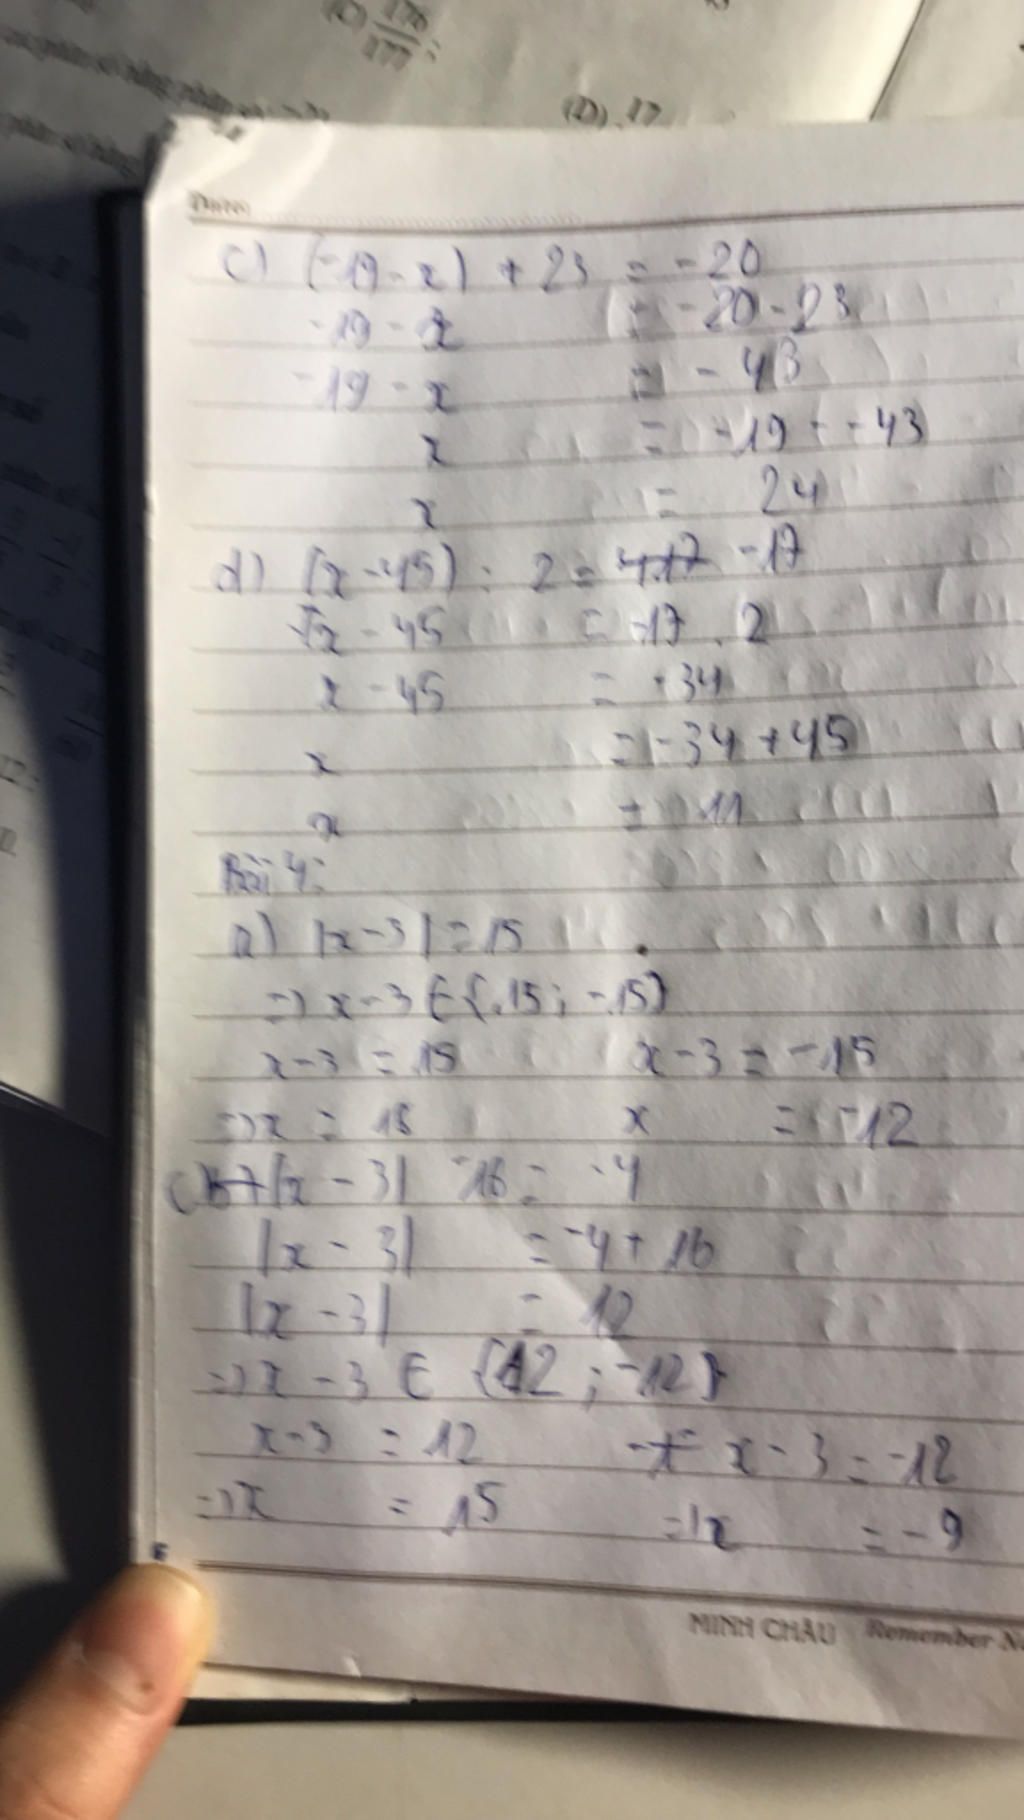 (C) 176/177;
(D) 17
Date:
c) (-19 - x) + 23 = -20
-19 - x = -20 - 23
-19 - x = -43
x = -19 - -43
x = 24
d) (x - 45) : 2 = -17
x - 45 = -17 . 2
x - 45 = -34
x = -34 + 45
x = 11
Bài 4:
a) |x - 3| = 15
=> x - 3 ∈ {15; -15}
x - 3 = 15 x - 3 = -15
=> x = 18 x = -12
c) |x - 3| - 16 = -4
|x - 3| = -4 + 16
|x - 3| = 12
=> x - 3 ∈ {12; -12}
x - 3 = 12 x - 3 = -12
=> x = 15 => x = -9
MINH CHÂU Remember